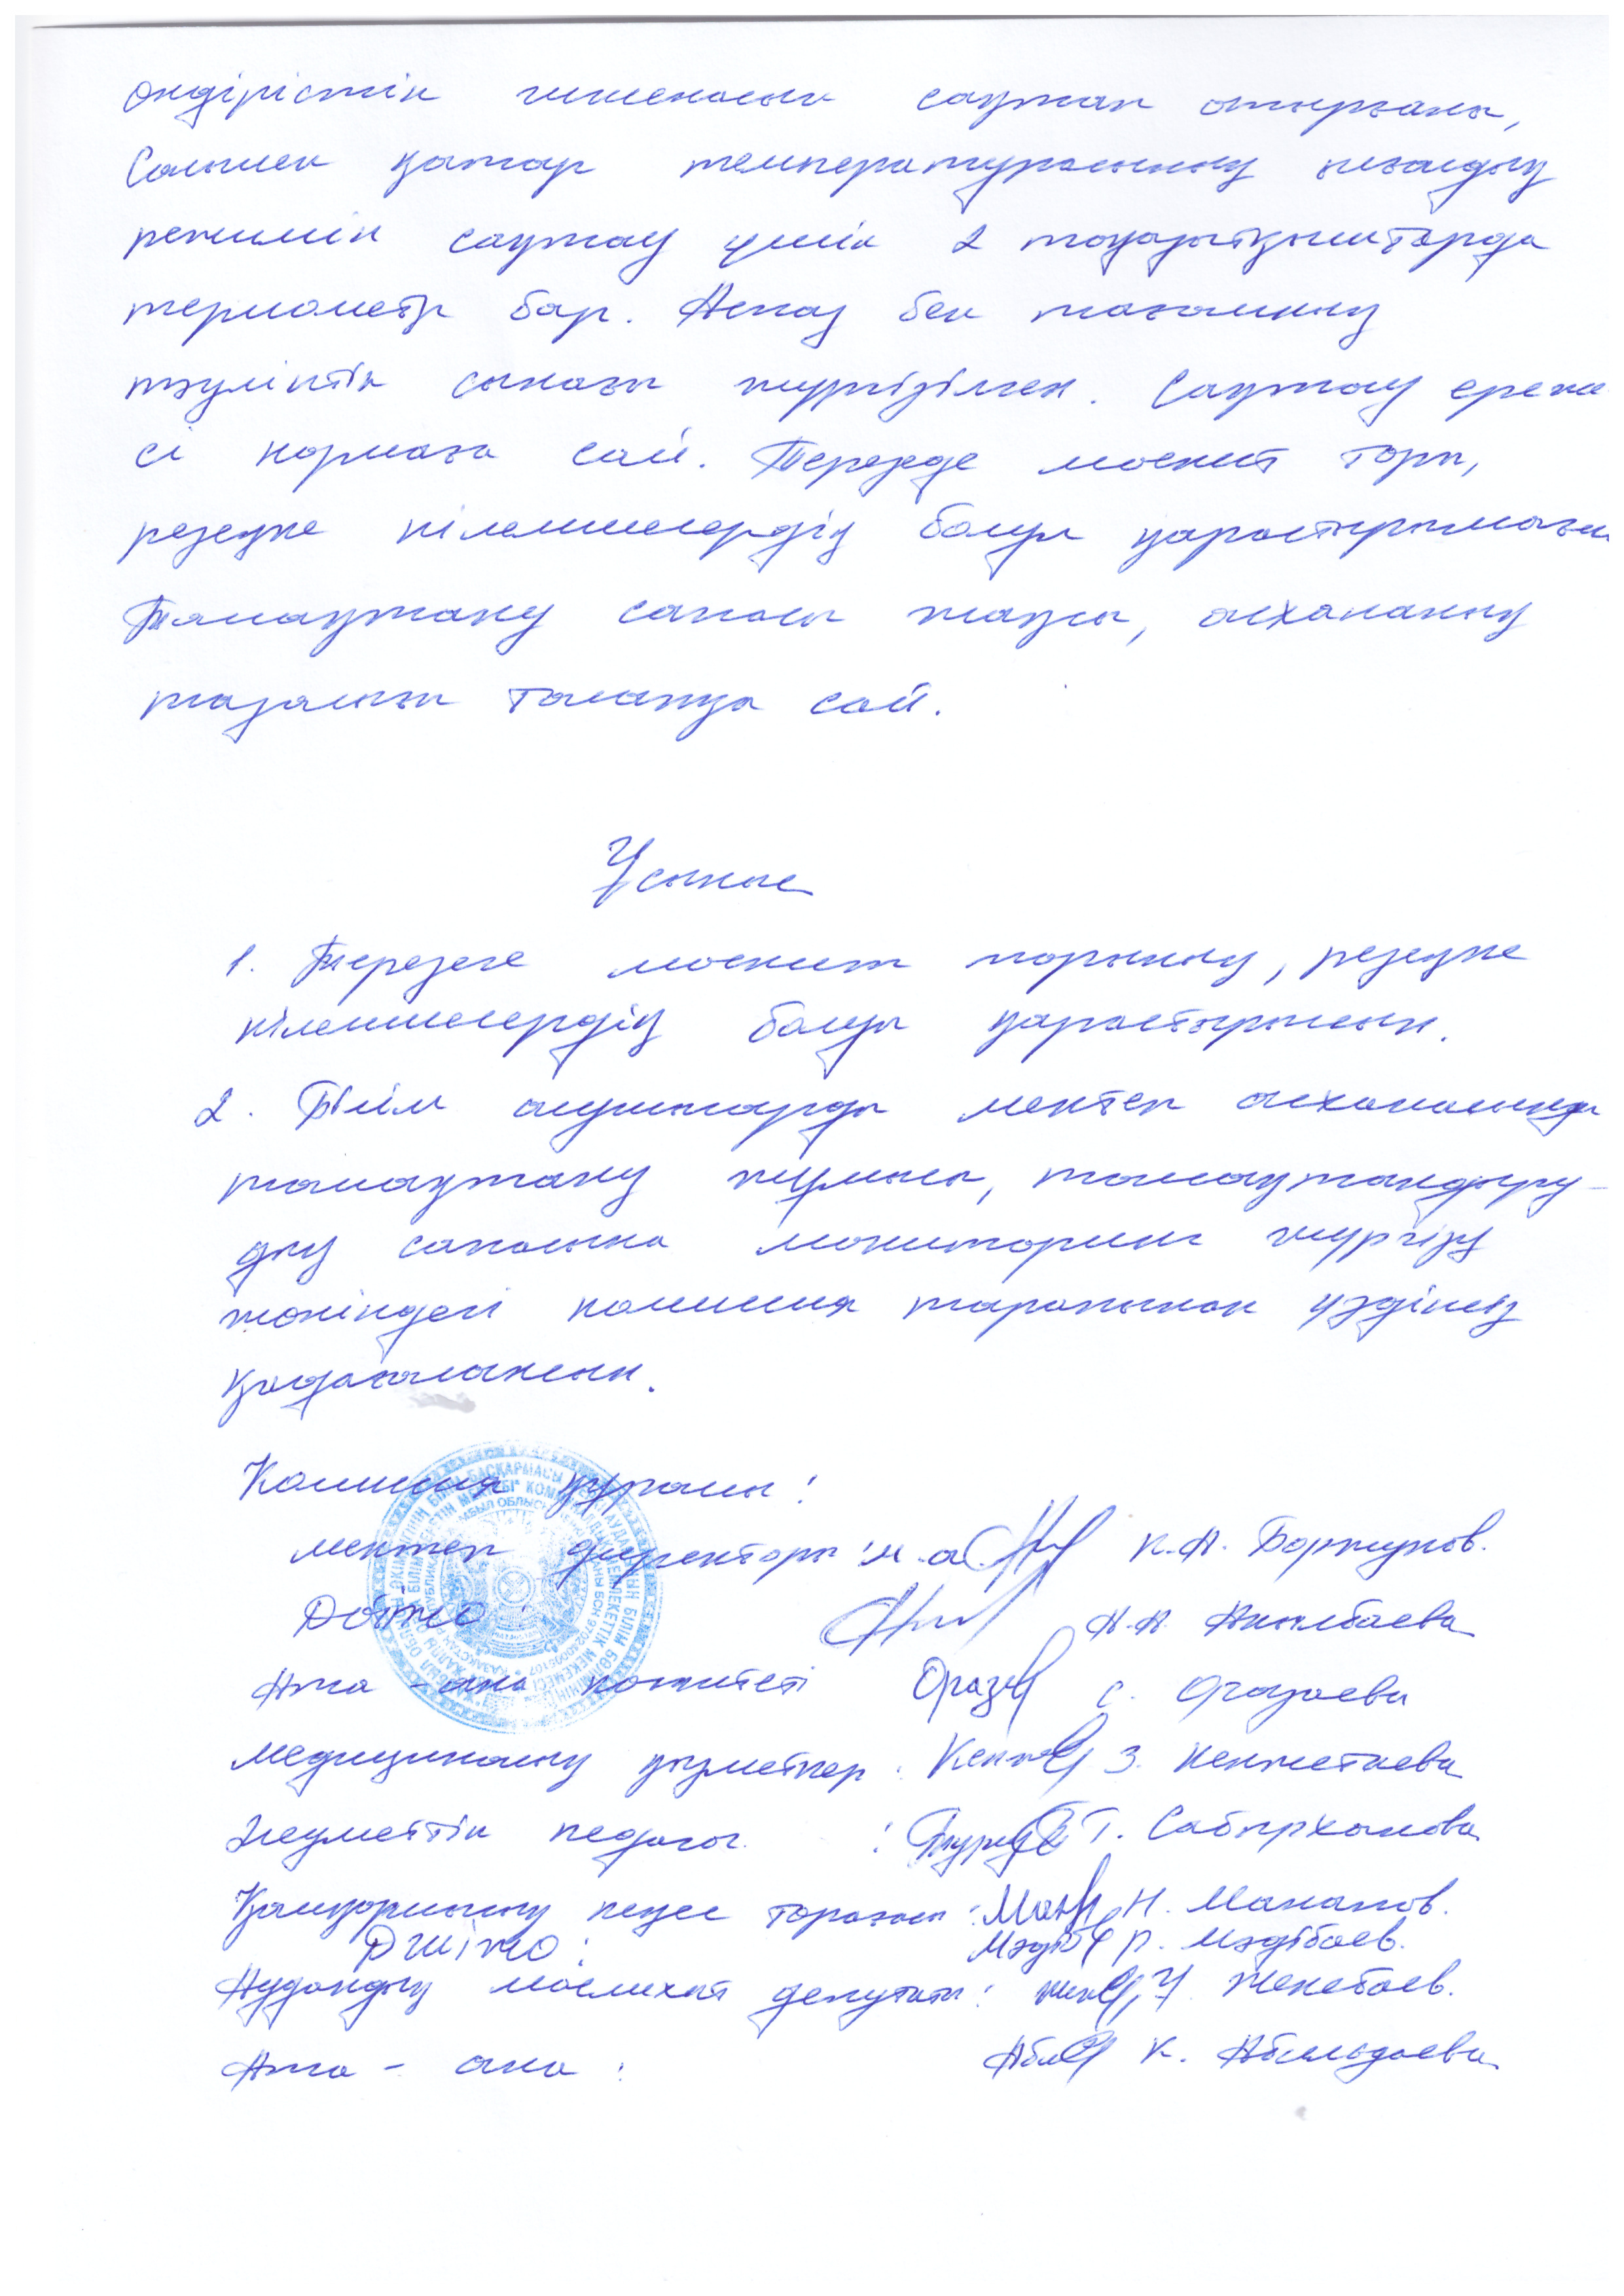 өндірістік гигиенасын сақтап отырғаны,
Сонымен қатар температураның ылғалдық
режимін сақтау үшін 2 тоңазытқыштарда
термометр бар. Аспаз бен тағамның
тәуліктік сынағы жүргізілген. Сақтау ереже
сі нормаға сай. Терезеде москит торы,
резеңке кілемшелердің болуы қарастырылмаған
Тамақтану сапасы жақсы, асхананың
тазалығы талапқа сай.
Ұсыныс
1. Терезеге москит торының, резеңке
кілемшелердің болуы қарастырылсын.
2. Білім алушыларды мектеп асханасында
тамақтану жұмысы, тамақтандыру-
дың сапасына мониторинг жүргізу
жөніндегі комиссия тарапынан үздіксіз
қадағалансын.
Комиссия құрамы:
мектеп директоры м.а. К.А. Боржұнов.
ДОІЖО: А.А. Ақылбаева
Ата-ана комитеті С. Оразаева
Медициналық қызметкер: З. Кенжетаева
Әлеуметтік педагог: Т. Сабырханова
Қамқоршылық кеңес төрағасы: Н. Манапов.
ДШІЖО: Р. Мәдібаев.
Аудандық маслихат депутаты: У. Женебаев.
Ата - ана: К. Абильдаева